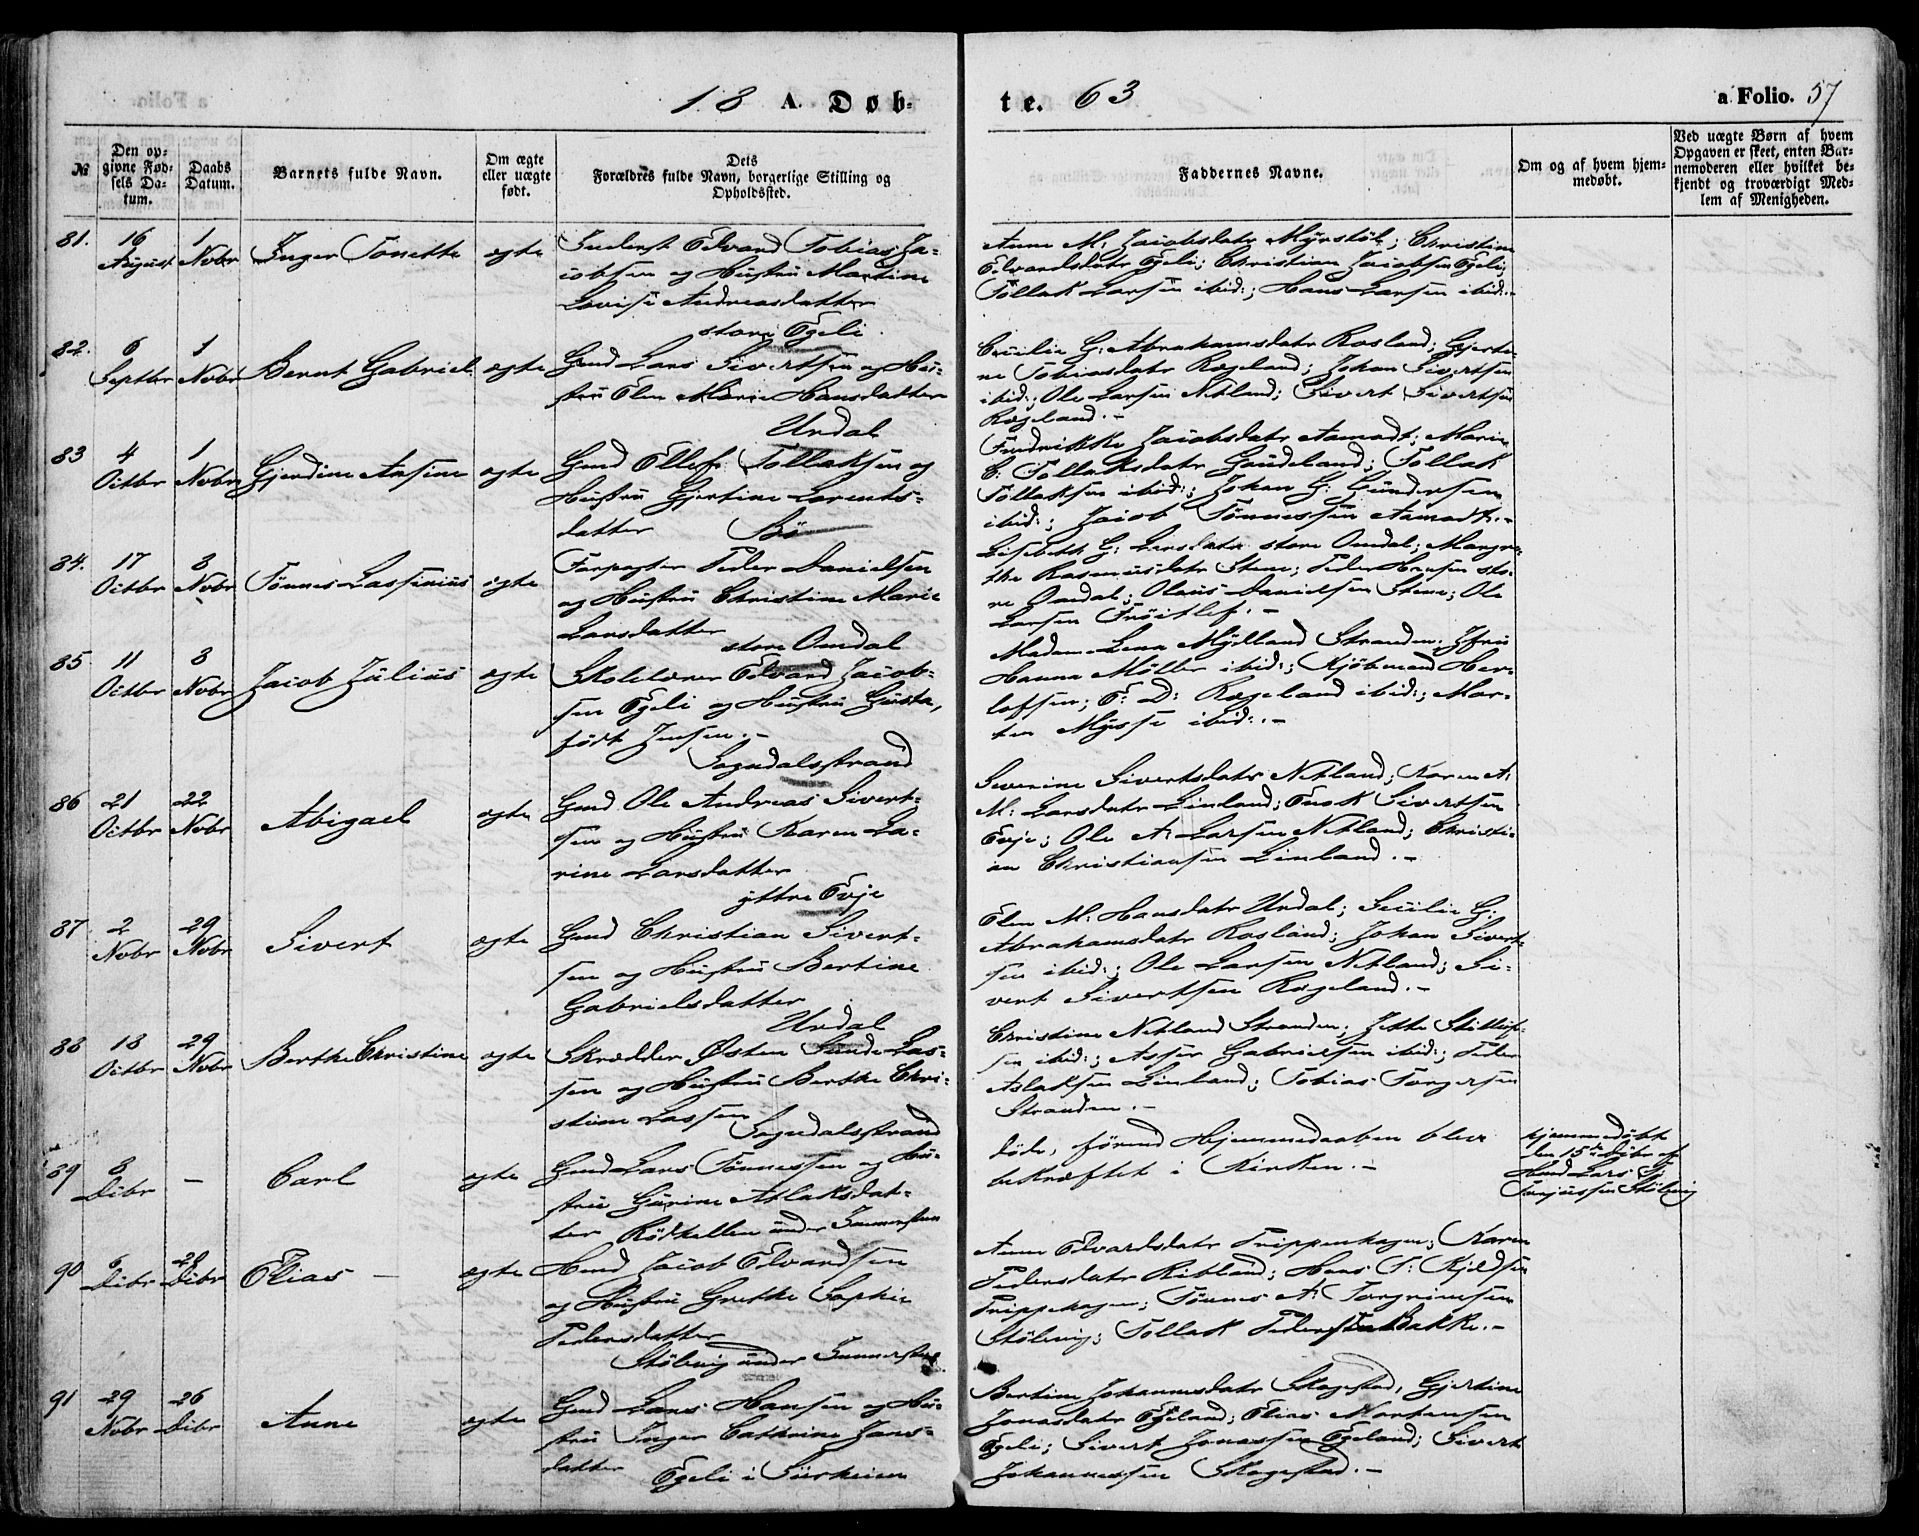 18 A. Døb-
te. 63
a Folio. 57
№
Den op-
givne Fød-
sels Da-
tum.
Daabs
Datum.
Barnets fulde Navn.
Om ægte
eller uægte
født.
Dets
Forældres fulde Navn, borgerlige Stilling og
Opholdssted.
Faddernes Navne.
Om og af hvem hjem-
medøbt.
Ved uægte Børn af hvem
Opgaven er skeet, enten Bar-
nemoderen eller hvilket be-
kjendt og troværdigt Med-
lem af Menigheden.
81. 16 August 1 Novbr Inger Tonette ægte
Inderst Edvard Tobias Ja-
cobsen og Hustru Martine
Lovise Andreasdatter
store Egeli
Anne M: Jacobsdatr Myrstøl; Christine
Edvardsdatr Egeli; Christian Jacobsen Egeli;
Tollak Larsen ibid:; Hans Larsen ibid:.-
82. 6 Septbr 1 Novbr Bernt Gabriel ægte
Gmd Lars Sivertsen og Hu-
stru Elen Marie Hansdatter
Urdal
Cecilie G: Abrahamsdatr Rosland; Gjerti-
ne Tobiasdatr Rogeland; Johan Sivertsen
ibid:; Ole Larsen Netland; Sivert Sivertsen
Rogeland.-
83 4 Octbr 1 Novbr Gjerdine Ansine ægte
Gmd Ellef Tollaksen og
Hustru Gjertine Lorents-
datter Bø
Fredrikke Jacobsdatr Aamodt; Marie
C: Tollaksdatr Gaudeland; Tollak
Tollaksen ibid:; Johan G: Gundersen
ibid:; Jacob Tønnessen Aamodt.-
84. 17 Octbr 8 Novbr Tønnes Lassenius ægte
Forpagter Peder Danielsen
og Hustru Christine Marie
Larsdatter
store Omdal
Lisebeth G: Larsdatr store Omdal; Margre-
the Rasmusdatr Stene; Peder Hansen sto-
re Omdal; Olaus Danielsen Stene; Ole
Larsen Frøitlef.-
85. 11 Octbr 8 Novbr Jacob Julius ægte
Skolelærer Edvard Jacob-
sen Egeli og Hustru Gusta,
født Jensen.-
Sogndalsstrand
Madam Lena Mylland Stranden; Jfru
Hanna Møller ibid:; Kjøbmand Her-
lofsen; E: D: Rogeland ibid:; Mar-
ten Mysse ibid:.-
86 21 Octbr 22 Novbr Abigael ægte
Gmd Ole Andreas Sivert-
sen og Hustru Karen La-
rine Larsdatter
yttre Evje
Severine Sivertsdatr Netland; Karen A:
M: Larsdatr Linland; Enok Sivertsen
Evje; Ole A: Larsen Netland; Christi-
an Christiansen Linland.-
87 2 Novbr 29 Novbr Sivert ægte
Gmd Christian Sivert-
sen og Hustru Bertine
Gabrielsdatter
Urdal
Elen M: Hansdatr Urdal; Secilie G:
Abrahamsdatr Rosland; Johan Sivert-
sen ibid:; Ole Larsen Netland; Si-
vert Sivertsen Rogeland.-
88 18 Octbr 29 Novbr Berthe Christine ægte
Skrædder Østen Sunde Las-
sen og Hustru Berthe Chri-
stine Lassen
Sogndalsstrand
Christine Netland Stranden; Jette
ibid:; Asser Gabrielsen ibid:; Peder
Aslaksen Linland; Tobias Torgersen
Stranden.-
89 8 Decbr - Carl ægte
Gmd Lars Tønnessen og Hu-
stru Gurine Atlaksdat-
ter Rødhellen under
døde, førend Hjemmedaaben blev
bekræftet i Kirken.-
hjemmedøbt
den 15 Decbr af
Lars
Stølevig
90 6 Decbr 28 Decbr Elias - ægte
Hmd Jacob Edvardsen
og Hustru Grethe Sophie
Pedersdatter
Stølevig under
Anne Edvardsdatr Trippenhagen; Karen
Pedersdatr Ribland; Hans S: Kjeldsen
Trippehagen; Tønnes A: Torgrimsen
Stølevig; Tollak Pedersen Bakke.-
91 29 Novbr 26 Decbr Anne ægte
Gmd Lars Hansen og Hu-
stru Inger Cathrine Jans-
datter Egeli i
Bertine Johannesdatr Skogestad; Gjertine
Jonasdatr Egeland; Elias Mortensen
Egeli; Sivert Jonassen Egeland; Sivert
Johannessen Skogestad.-